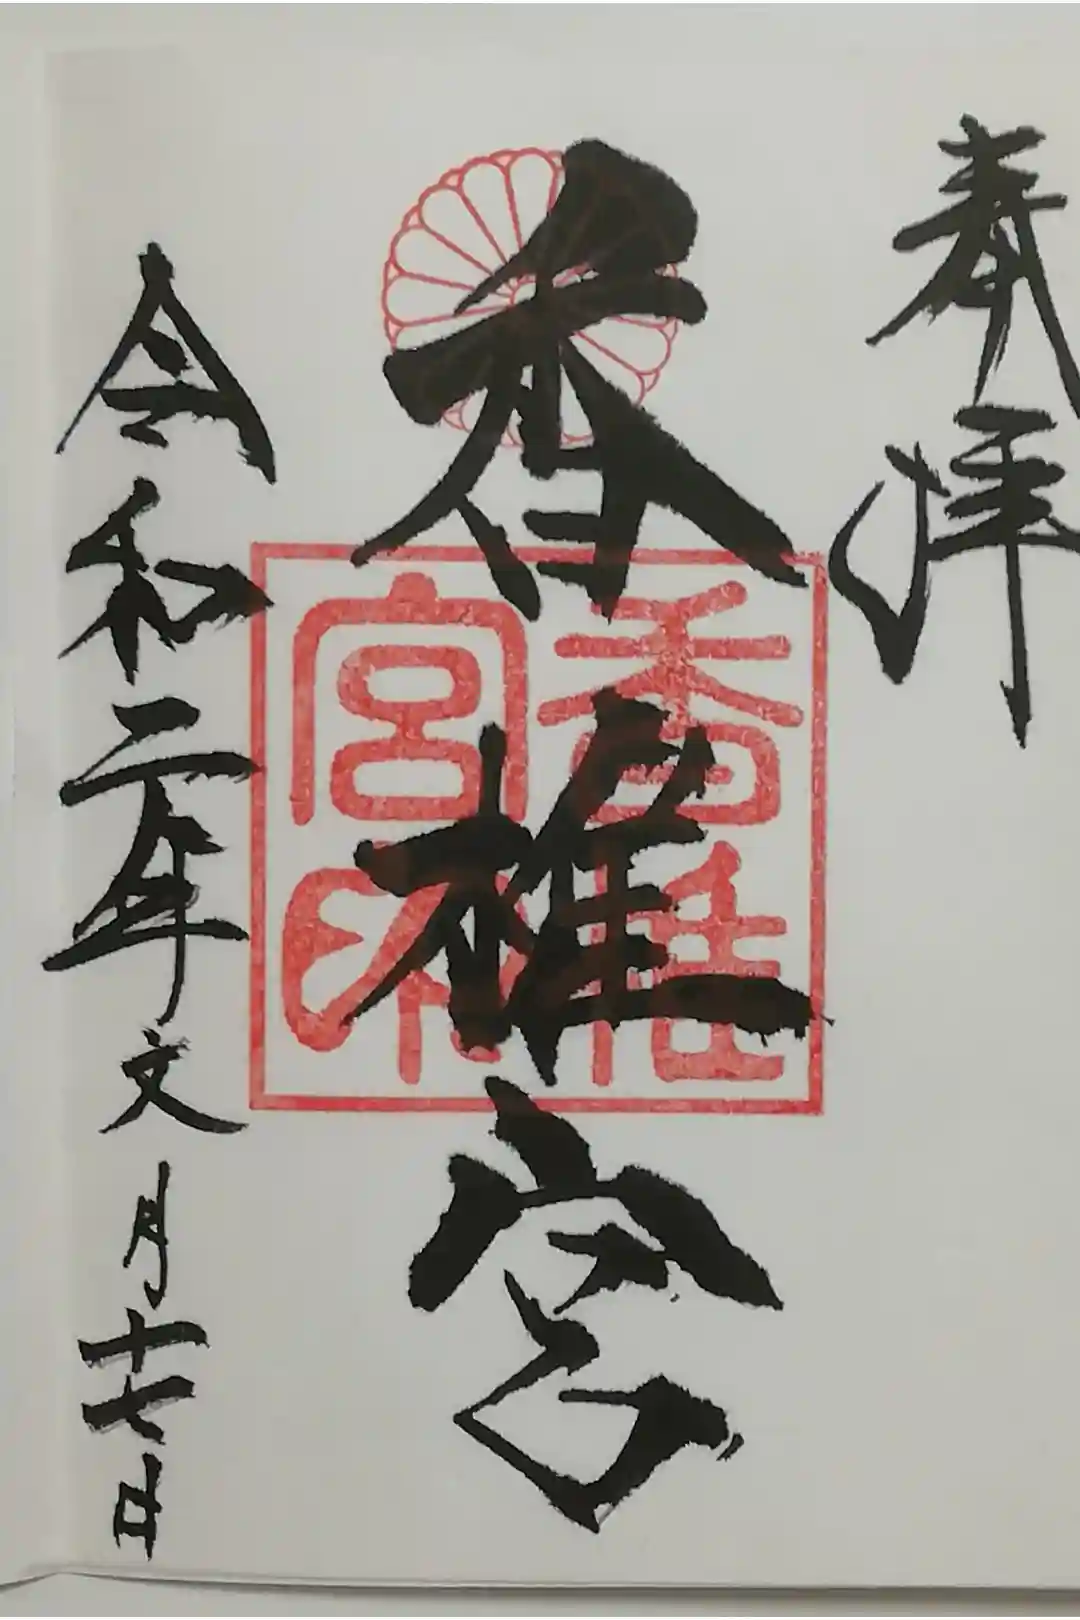 奉拝
香椎宮
香椎
宮印
令和二年文月十七日